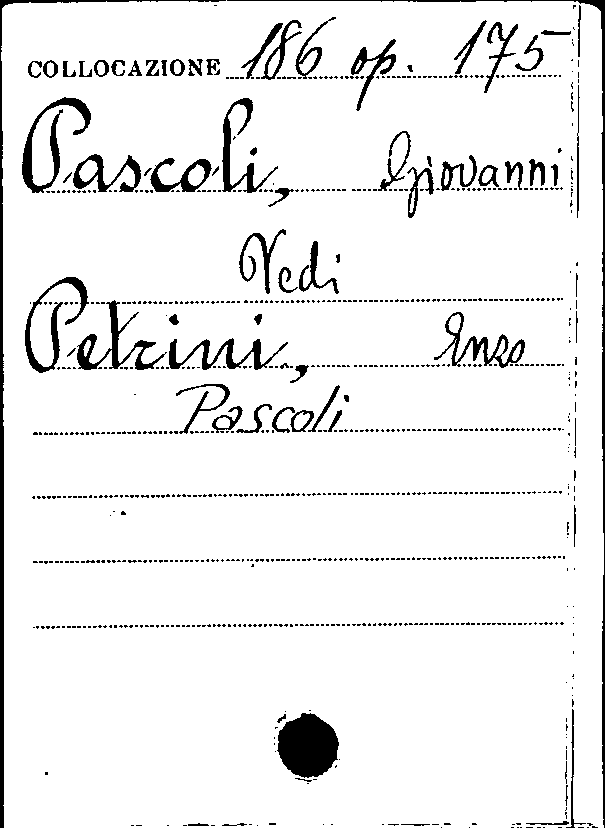 COLLOCAZIONE 186 op. 175
Pascoli, Giovanni
Vedi
Petrini, Enzo
Pascoli